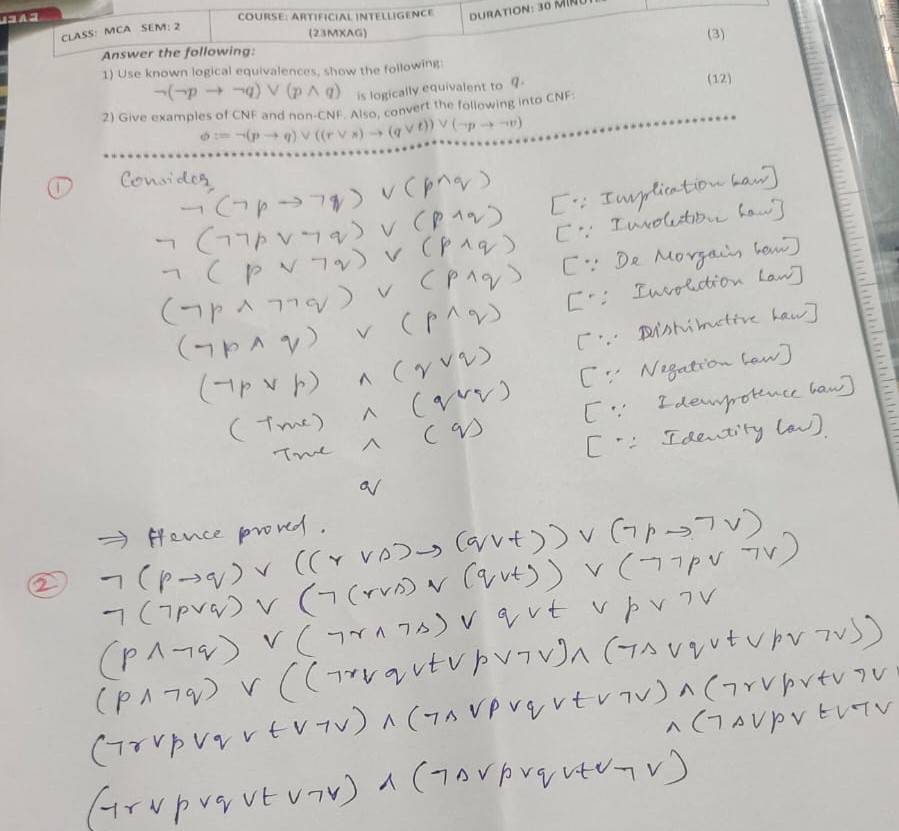 CLASS: MCA SEM: 2
COURSE: ARTIFICIAL INTELLIGENCE
(23MXAG)
DURATION: 30
Answer the following:
1) Use known logical equivalences, show the following: (3)
¬(¬p → ¬q) ∨ (p ∧ q) is logically equivalent to q.
2) Give examples of CNF and non-CNF. Also, convert the following into CNF: (12)
ϕ := ¬(p → q) ∨ ((r ∨ s) → (q ∨ t)) ∨ (¬p → ¬v)
① Consider,
¬(¬p → ¬q) ∨ (p∧q)
¬(¬¬p ∨ ¬q) ∨ (p∧q) [∵ Implication Law]
¬(p ∨ ¬q) ∨ (p∧q) [∵ Involution Law]
(¬p ∧ ¬¬q) ∨ (p∧q) [∵ De Morgain Law]
(¬p ∧ q) ∨ (p∧q) [∵ Involution Law]
(¬p ∨ p) ∧ (q∨q) [∵ Distributive Law]
(True) ∧ (q∨q) [∵ Negation Law]
True ∧ (q) [∵ Idempotence Law]
q [∵ Identity Law].
⇒ Hence proved.
② ¬(p→q) ∨ ((r∨s)→(q∨t)) ∨ (¬p→¬v)
¬(¬p∨q) ∨ (¬(r∨s) ∨ (q∨t)) ∨ (¬¬p∨¬v)
(p∧¬q) ∨ (¬r∧¬s) ∨ q∨t ∨ p∨¬v
(p∧¬q) ∨ ((¬r∨q∨t∨p∨¬v)∧(¬s∨q∨t∨p∨¬v))
(¬r∨p∨q∨t∨¬v) ∧ (¬s∨p∨q∨t∨¬v) ∧ (¬r∨p∨t∨¬v
∧ (¬s∨p∨t∨¬v
(¬r∨p∨q∨t∨¬v) ∧ (¬s∨p∨q∨t∨¬v)